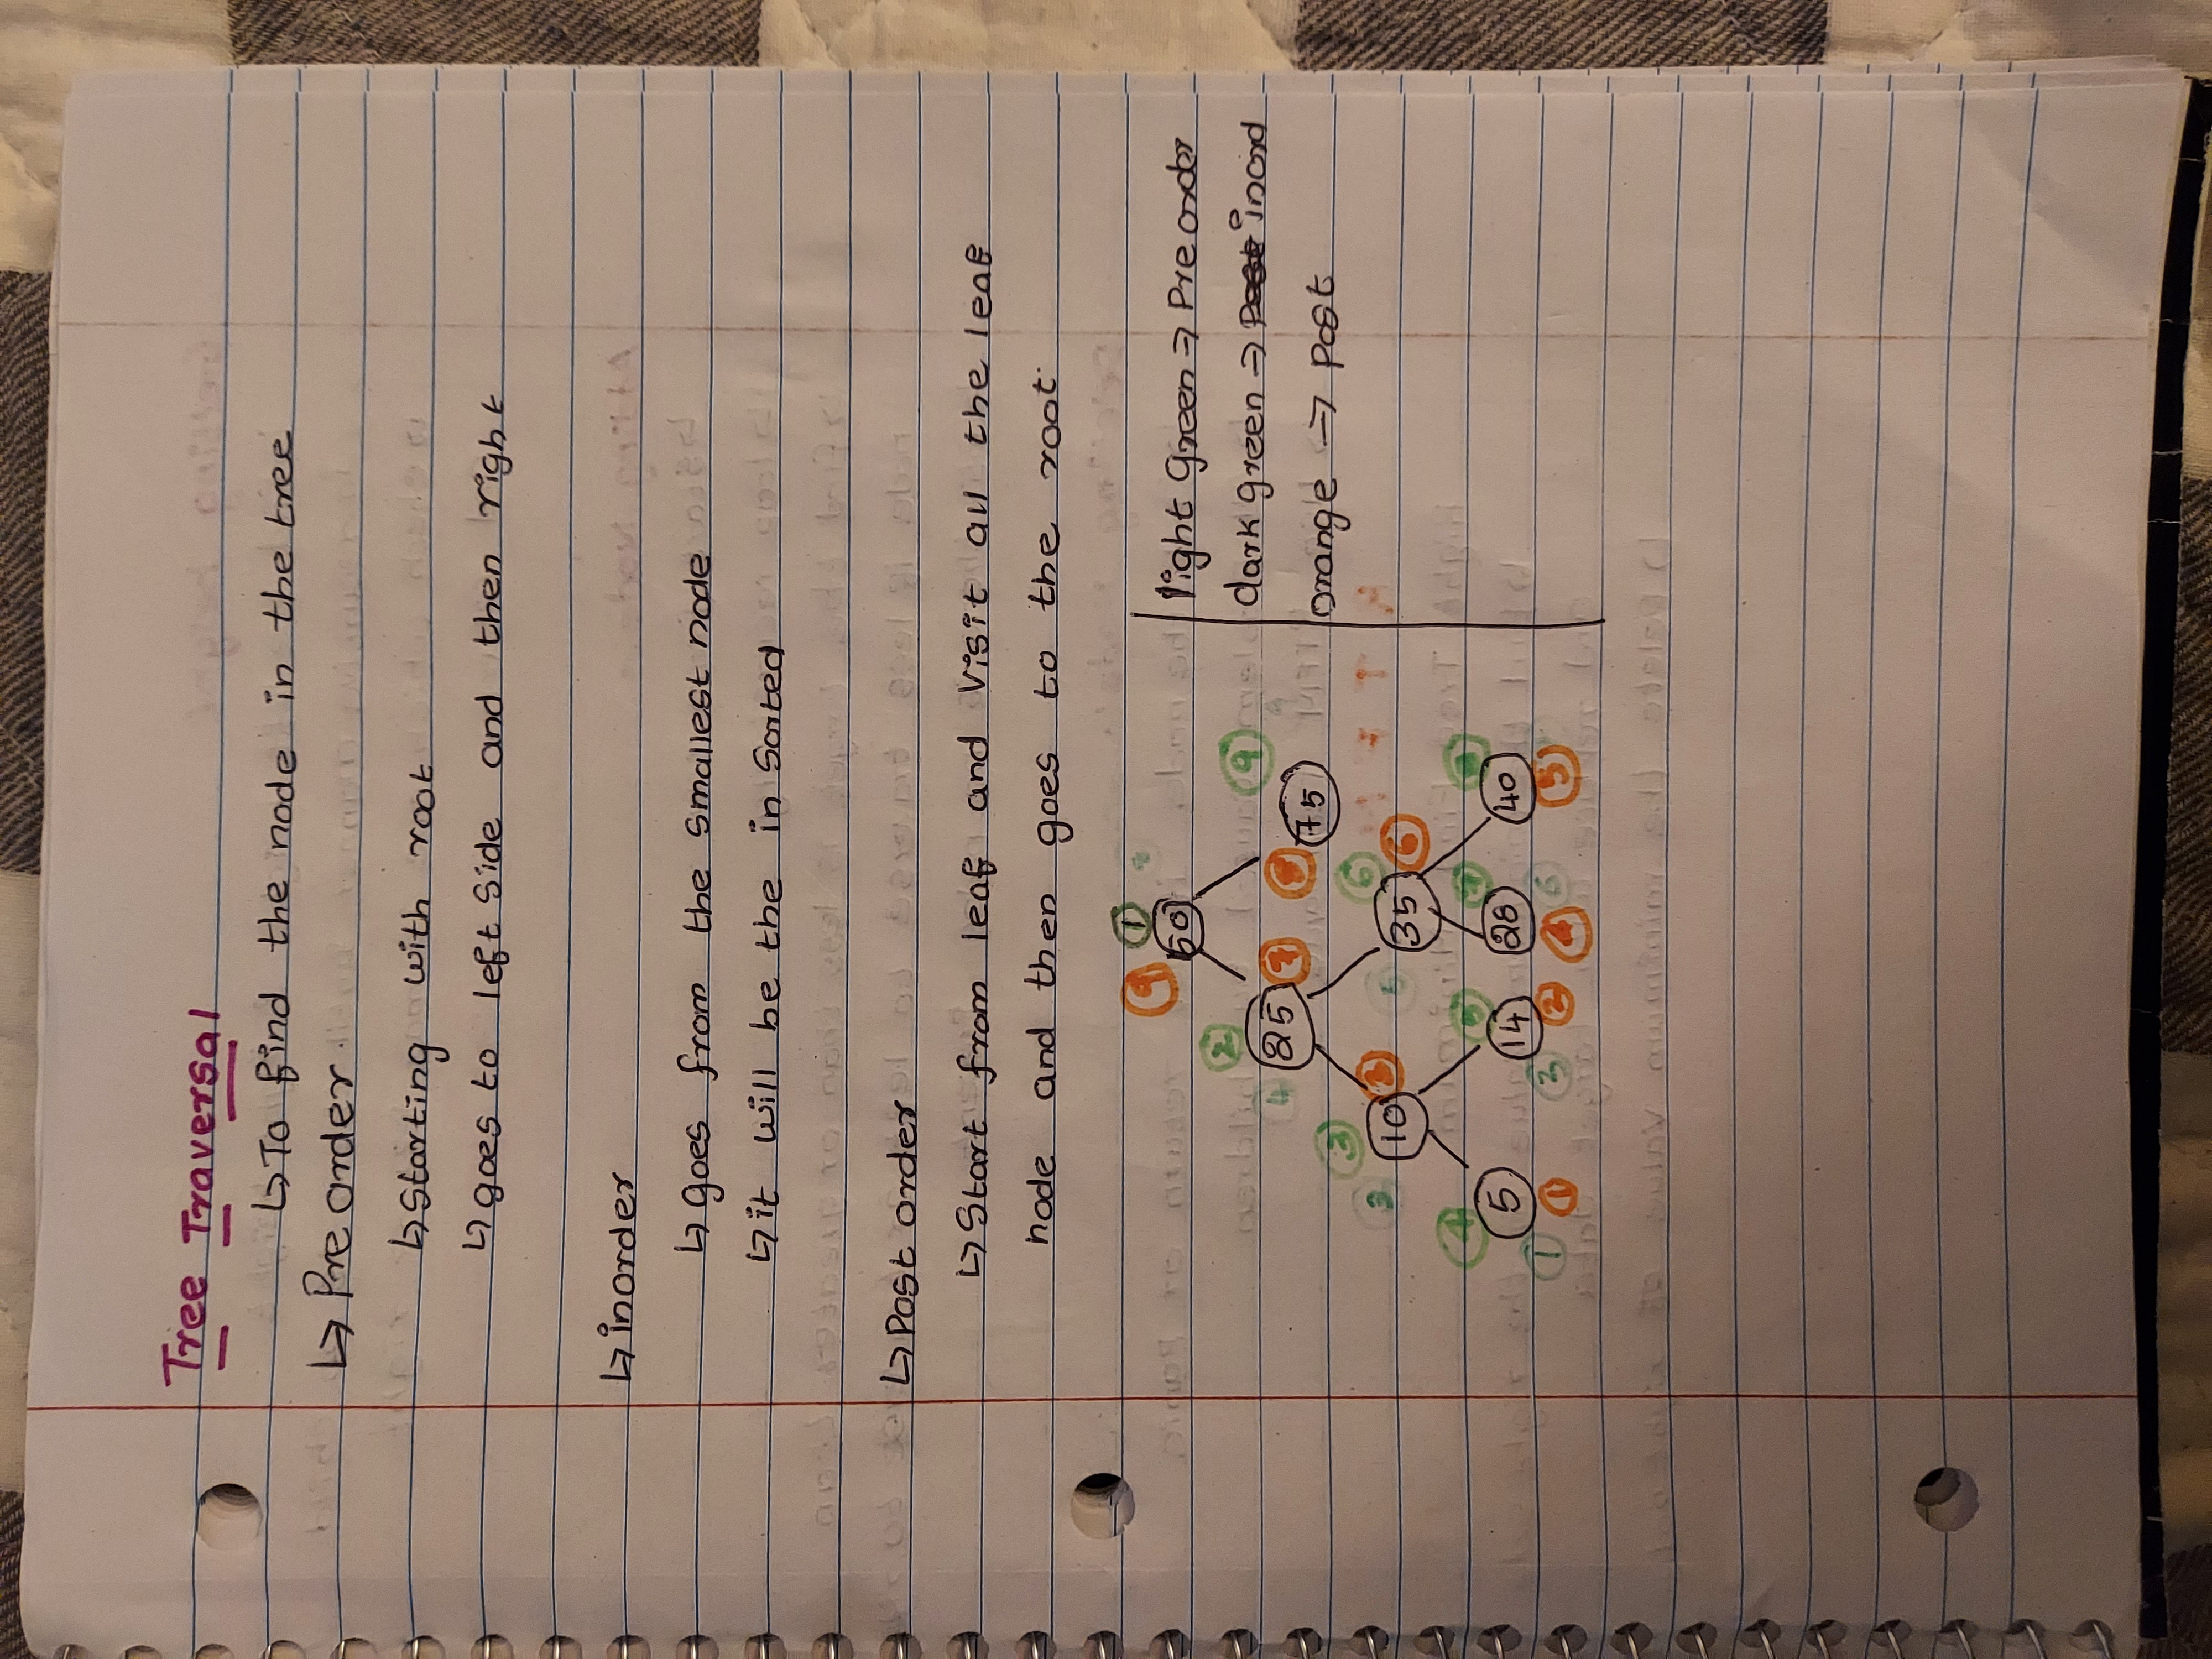 Tree Traversal
↳ To find the node in the tree
↳ Pre order.
↳ Starting with root
↳ goes to left side and then right
↳ inorder
↳ goes from the smallest node
↳ it will be the in Sorted
↳ Post order
↳ Start from leaf and Visit all the leaf
node and then goes to the root.
9 1
50
2 9
4 25 7 8 75
3 6
2 10 3 35 6
4 5 7 8
5 14 28 40
1 1 3 2 4 6 5
light green ⇒ Pre order
dark green ⇒ inord
orange ⇒ post